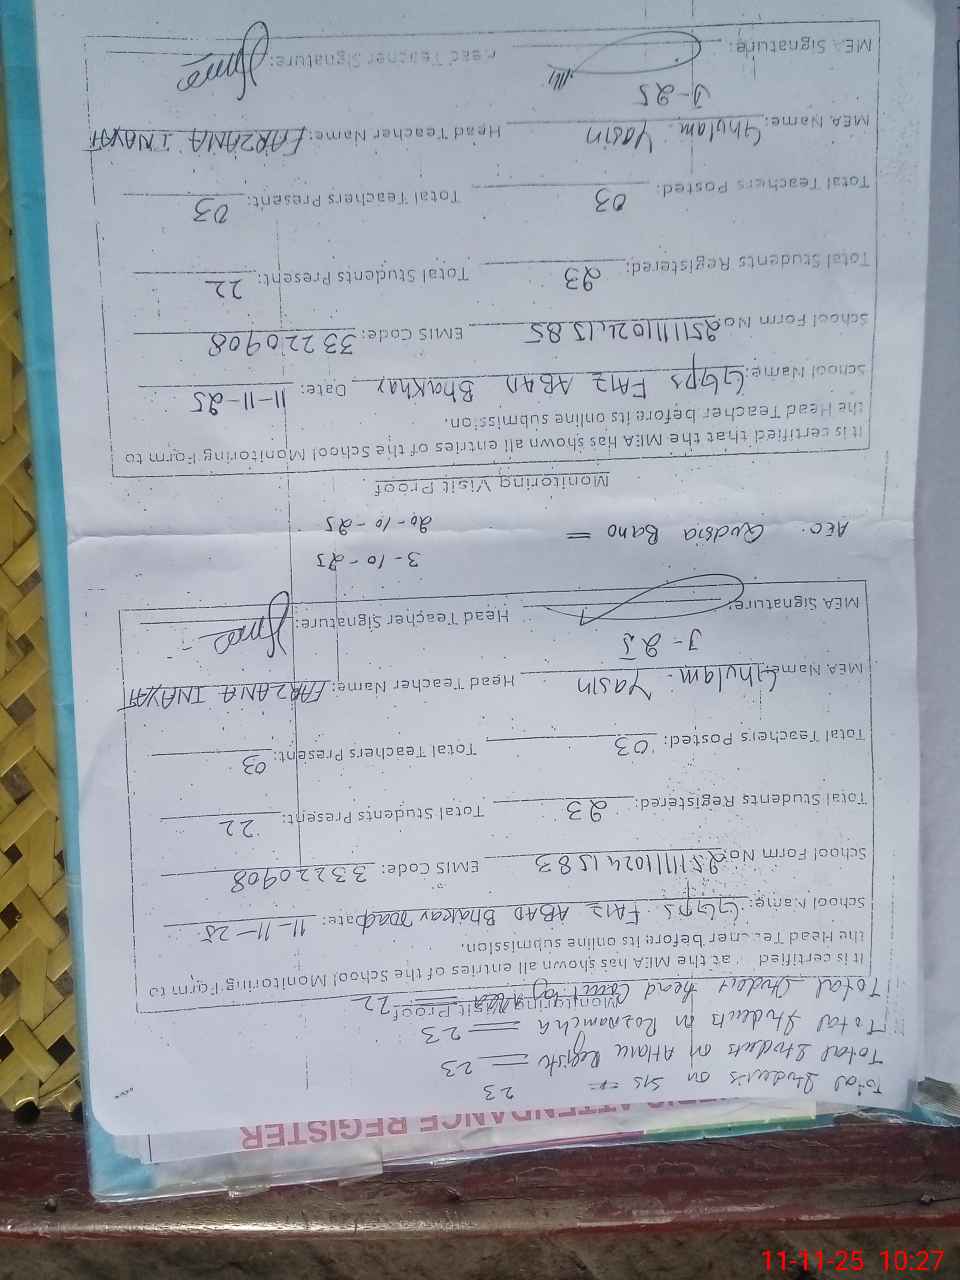 ATTENDANCE REGISTER
Total Students on SIS = 23
Total Students on Attane Registe = 23
Total Students on Roznamcha = 23
Total Student head Count = 22
Monitoring Visit Proof
It is certified at the MEA has shown all entries of the School Monitoring Form to
the Head Teacher before its online submission.
School Name: GGps FAIZ ABAD Bhakar Date: 11-11-25
School Form No. EMIS Code: 33220908
Total Students Registered: 23 Total Students Present: 22
Total Teachers Posted: 03 Total Teachers Present: 03
MEA Name: Ghulam Yasin Head Teacher Name: FARZANA INAYAT
J-25
MEA Signature: Head Teacher Signature:
3-10-25
AEO. Qudsia Bano =
20-10-25
Monitoring Visit Proof
It is certified that the MEA has shown all entries of the School Monitoring Form to
the Head Teacher before its online submission.
School Name: GGps FAIZ ABAD Bhakhar Date: 11-11-25
School Form No. EMIS Code: 33220908
Total Students Registered: 23 Total Students Present: 22
Total Teachers Posted: 03 Total Teachers Present: 03
MEA Name: Ghulam Yasin Head Teacher Name: FARZANA INAYAT
J-25
MEA Signature: Head Teacher Signature:
11-11-25 10:27